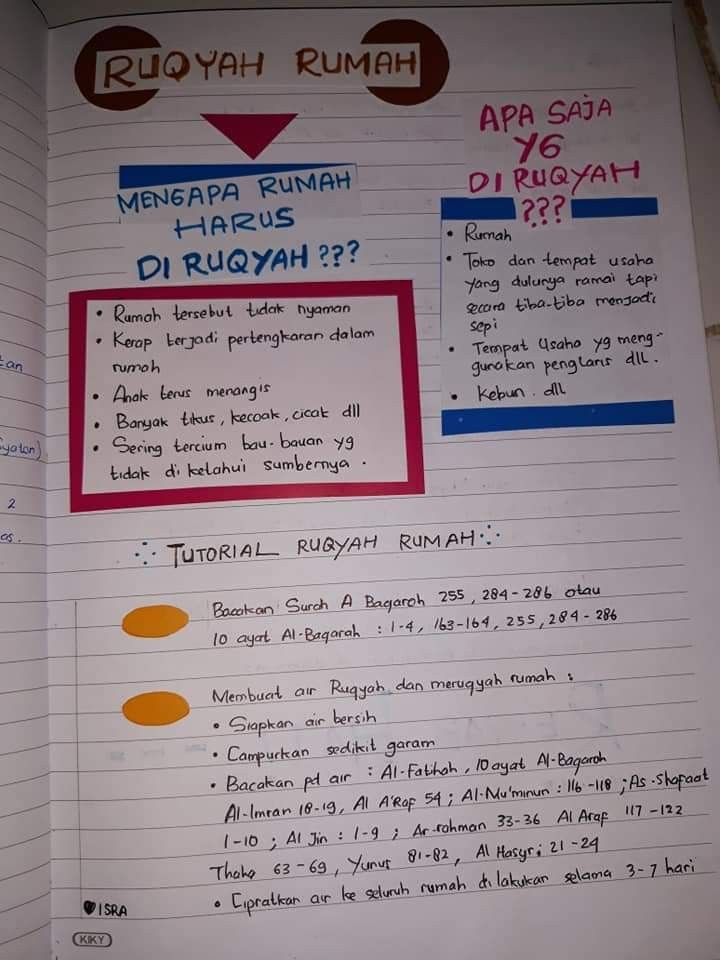 RUQYAH RUMAH
MENGAPA RUMAH
HARUS
DI RUQYAH ???
• Rumah tersebut tidak nyaman
• Kerap terjadi pertengkaran dalam
rumah
• Anak terus menangis
• Banyak tikus, kecoak, cicak dll
• Sering tercium bau-bauan yg
tidak di ketahui sumbernya.
APA SAJA
YG
DI RUQYAH
???
• Rumah
• Toko dan tempat usaha
yang dulunya ramai tapi
secara tiba-tiba menjadi
sepi
• Tempat Usaha yg meng-
gunakan penglaris dll.
• Kebun. dll
TUTORIAL RUQYAH RUMAH
Bacakan Surah A Baqarah 255, 284-286 atau
10 ayat Al-Baqarah : 1-4, 163-164, 255, 284-286
Membuat air Ruqyah dan meruqyah rumah :
• Siapkan air bersih
• Campurkan sedikit garam
• Bacakan pd air : Al-Fatihah, 10 ayat Al-Baqarah
Al-Imran 18-19, Al A'Rof 54 ; Al-Mu'minun : 116-118 ; As-Shafaat
1-10 ; Al Jin : 1-9 ; Ar-rohman 33-36 Al Araf 117-122
Thoha 63-69, Yunus 81-82, Al Hasyr ; 21-24
• Cipratkan air ke seluruh rumah di lakukan selama 3-7 hari
ISRA
KIKY
tan
syaton)
2
as.